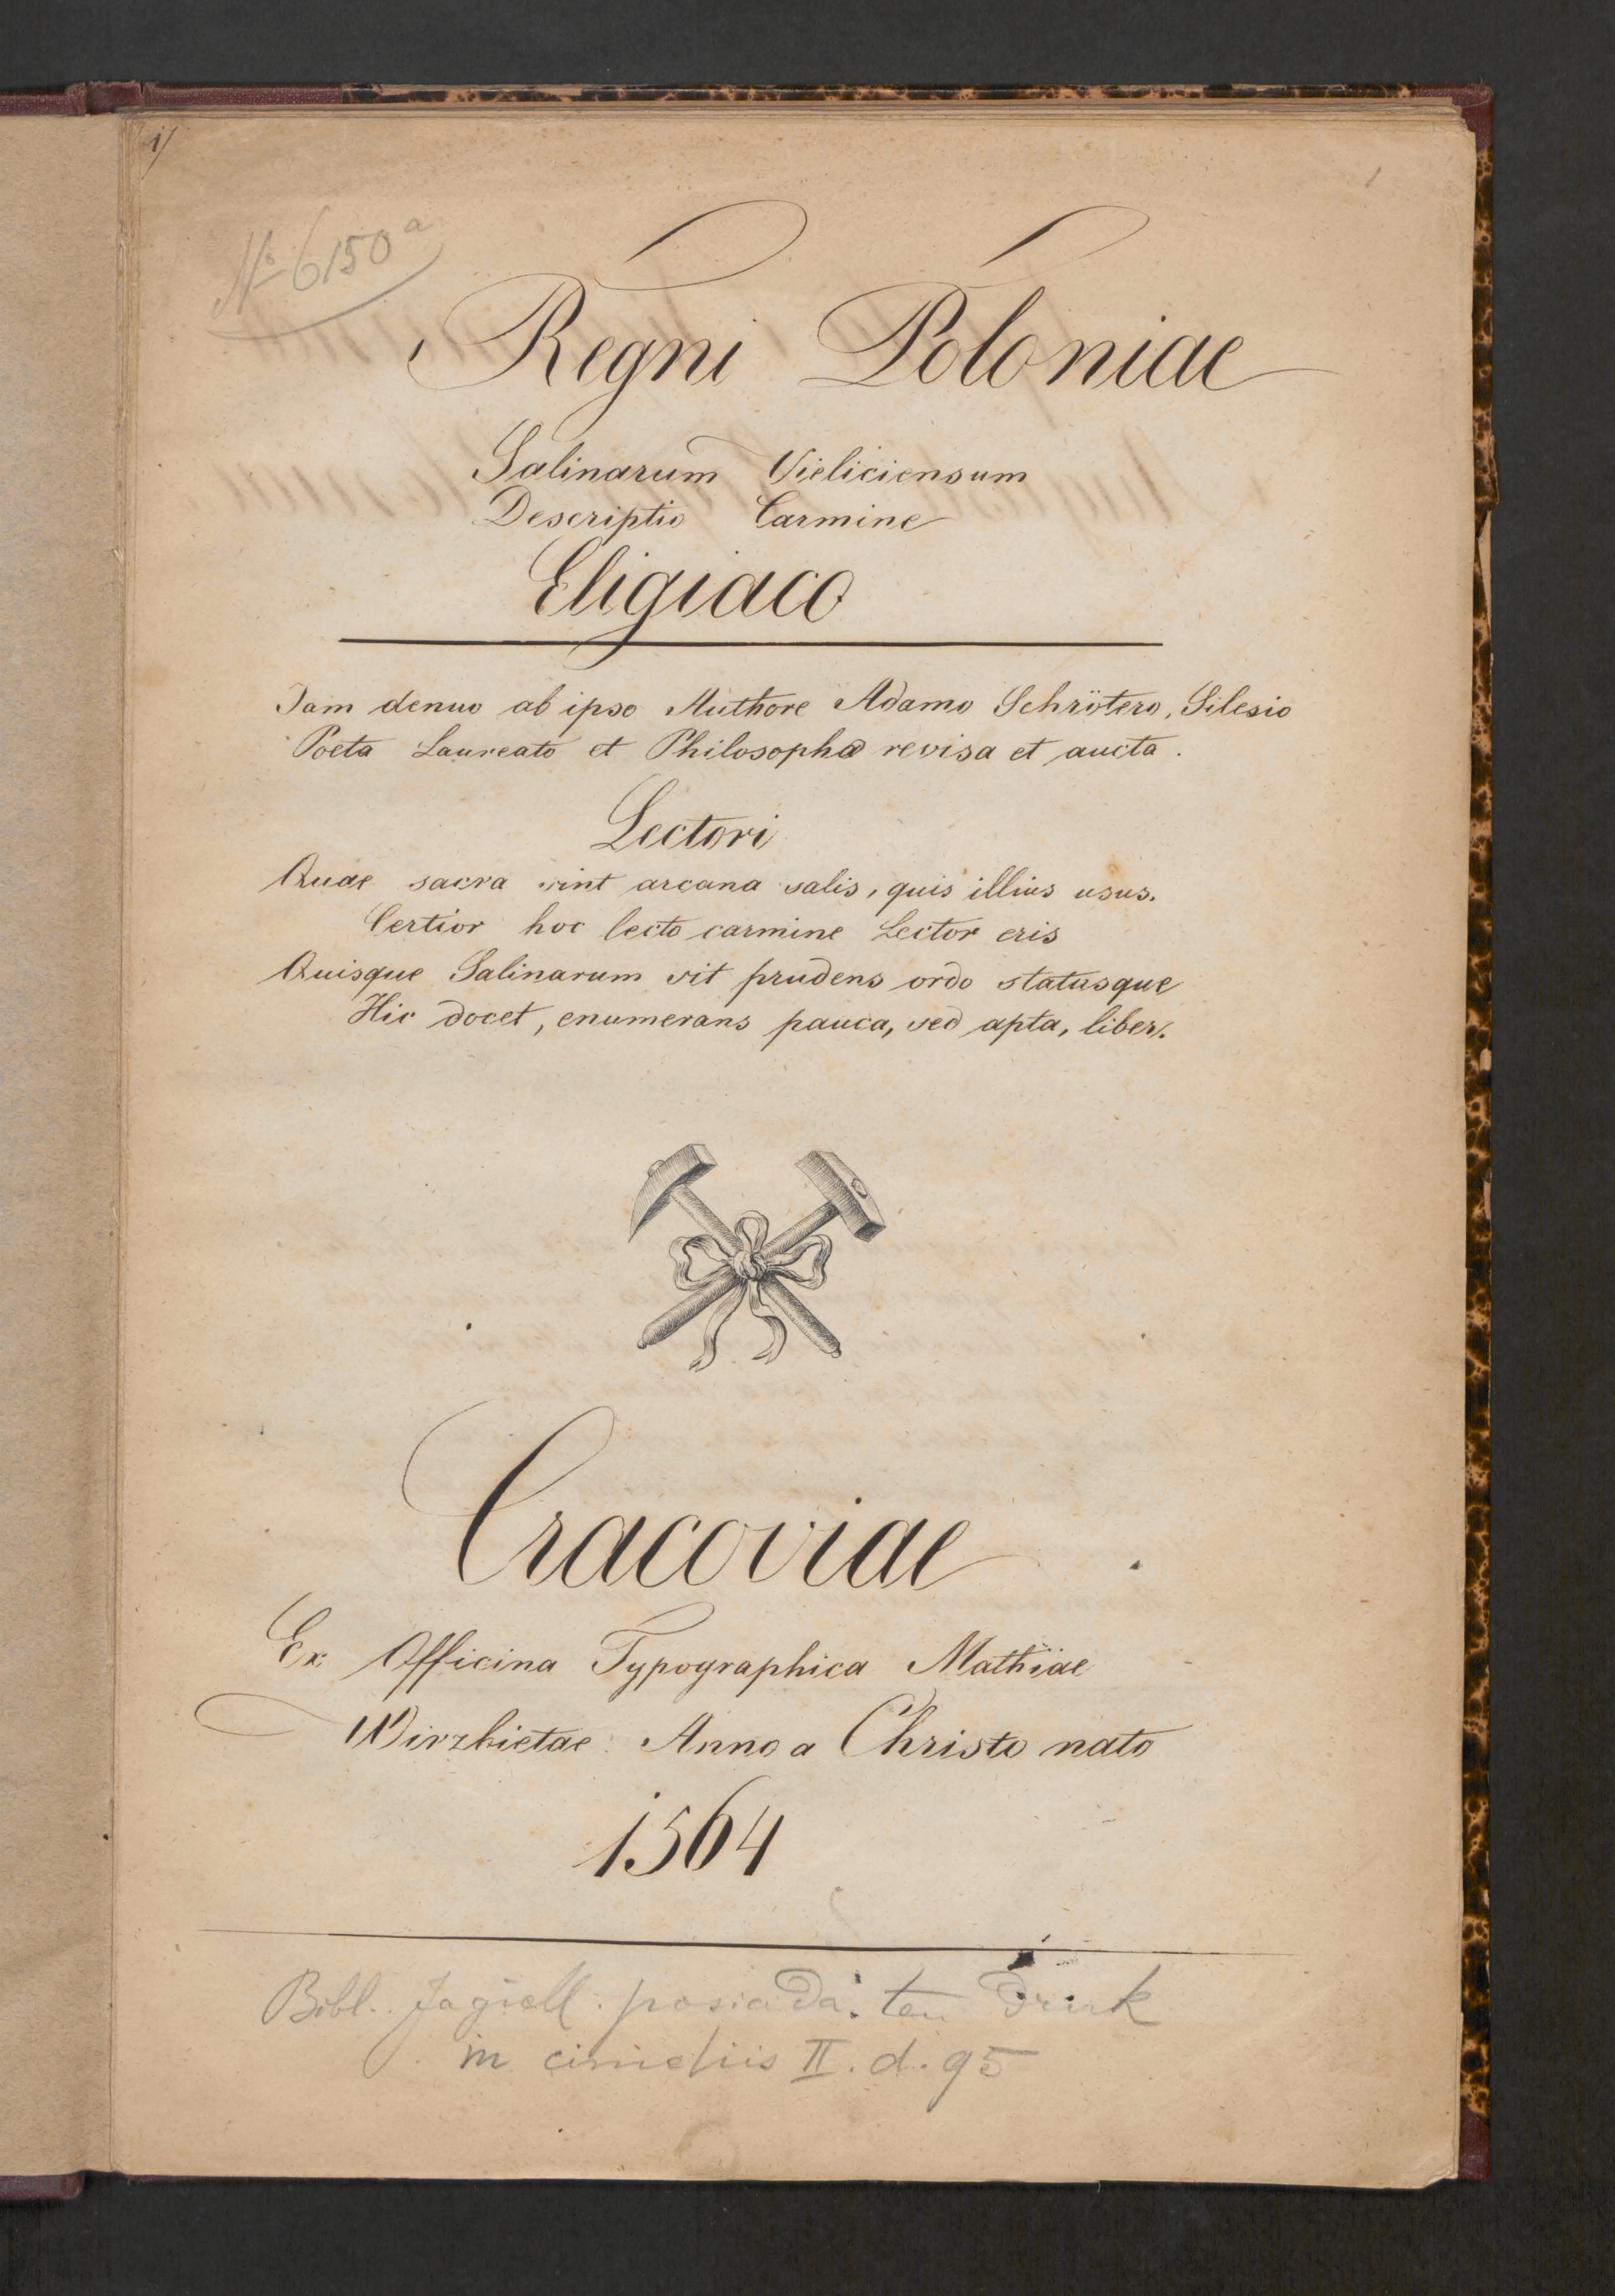 1/
1
№ 6150a
Regni Poloniae
Salinarum Vieliciensum
Descriptio Carmine
Eligiaco
Jam denuo ab ipso Authore Adamo Schrötero, Silesio
Poeta Laureato et Philosopho revisa et aucta.
Lectori
Quae sacra sint arcana salis, quis illius usus.
Certior hoc lecto carmine Lector eris
Quisque Salinarum sit prudens ordo statusque
Hic docet, enumerans pauca, sed apta, liber.
Cracoviae
Ex Officina Typographica Mathiae
Wirzbietae Anno a Christo nato
1564
Bibl. Jagiell. posiada ten druk
in cimeliis II. d. 95